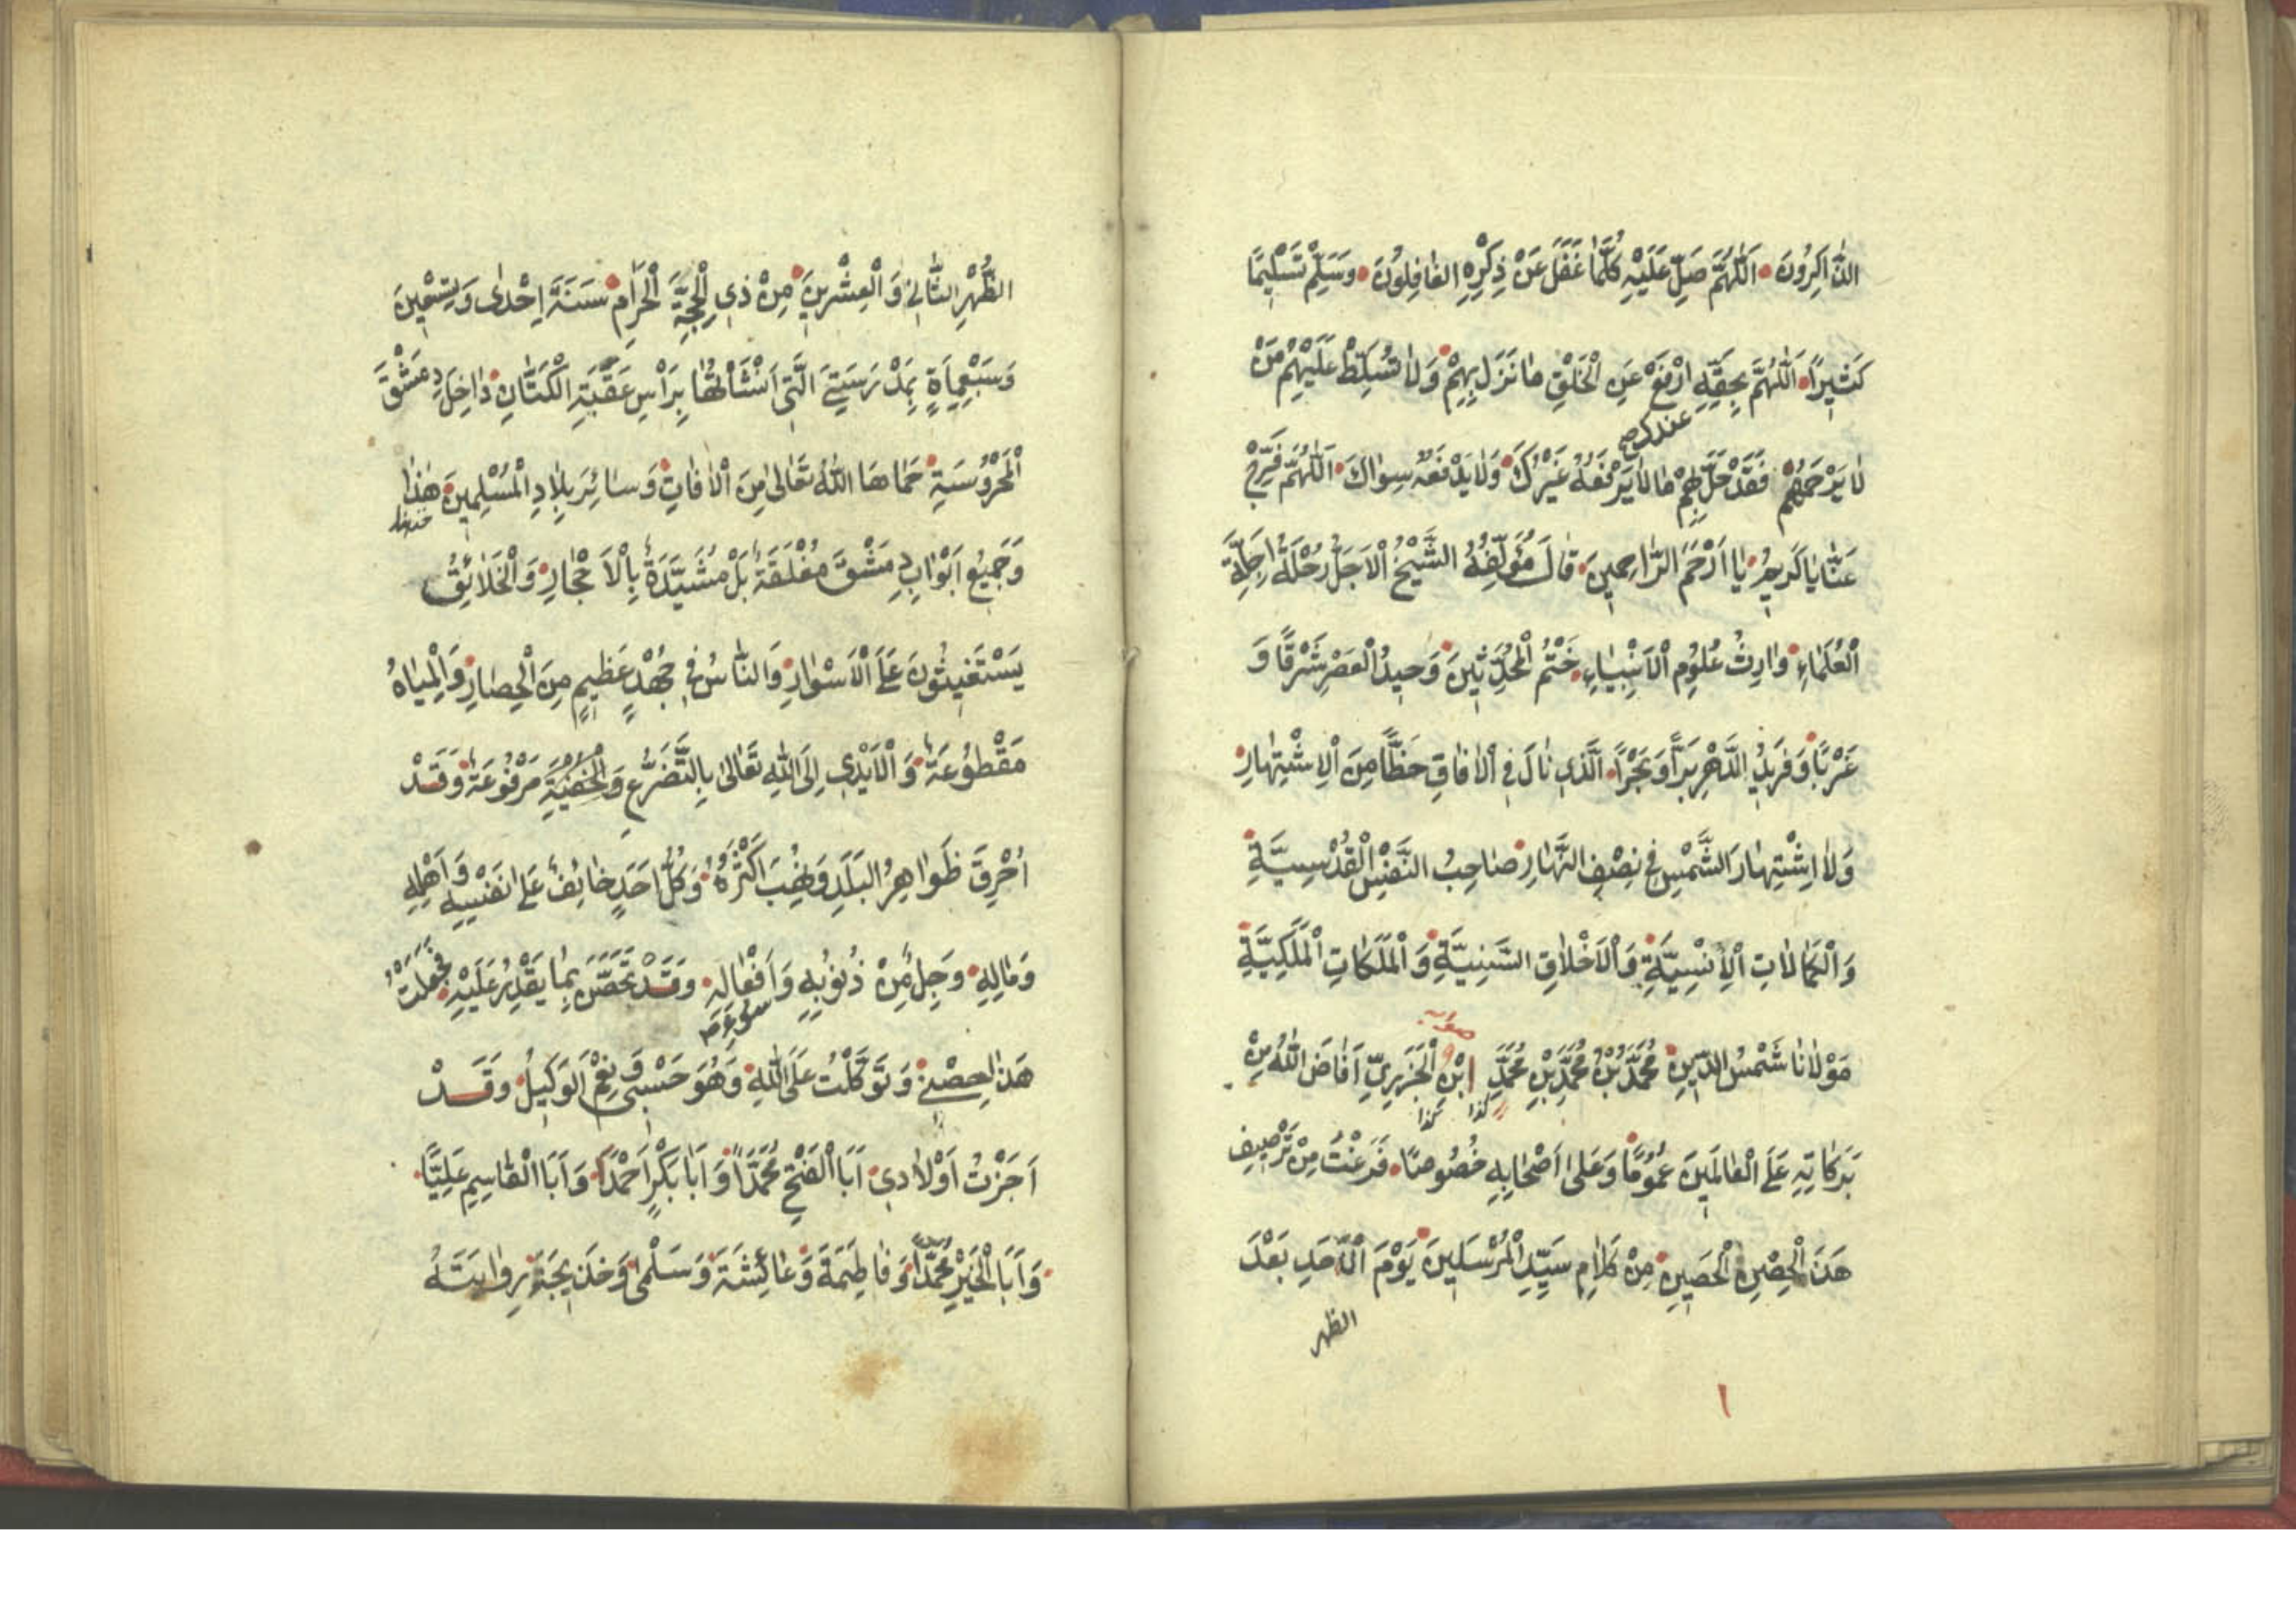 الذَّاكِرُونَ اَللّٰهُمَّ صَلِّ عَلَيْهِ كُلَّمَا غَفَلَ عَنْ ذِكْرِهِ الغَافِلُونَ وَسَلِّمْ تَسْلِيمًا
كَثِيرًا اَللّٰهُمَّ بِحَقِّهِ ارْفَعْ عَنِ الْخَلْقِ مَا نَزَلَ بِهِمْ وَلَا تُسَلِّطْ عَلَيْهِمْ مَنْ
لَا يَرْحَمُهُمْ فَقَدْ حَلَّ بِهِمْ مَا لَا يَرْفَعُهُ غَيْرُكَ وَلَا يَدْفَعُهُ سِوَاكَ اَللّٰهُمَّ فَرِّجْ
عَنَّا يَا كَرِيمُ يَا اَرْحَمَ الرَّاحِمِينَ قَالَ مُؤَلِّفُهُ الشَّيْخُ الْاَجَلُّ رُحْلَةُ اَجِلَّةِ
الْعُلَمَاءِ وَارِثُ عُلُومِ الْاَنْبِيَاءِ خَتْمُ الْمُحَدِّثِينَ وَحِيدُ الْعَصْرِ شَرْقًا وَ
غَرْبًا وَفَرِيدُ الدَّهْرِ بَرًّا وَبَحْرًا الَّذِي نَالَ فِي الْآفَاقِ حَظًّا مِنَ الْاِشْتِهَارِ
وَلَا اشْتِهَارَ الشَّمْسِ فِي نِصْفِ النَّهَارِ صَاحِبُ النَّفْسِ الْقُدْسِيَّةِ
وَالْكَمَالَاتِ الْاِنْسِيَّةِ وَالْاَخْلَاقِ السَّنِيَّةِ وَالْمَلَكَاتِ الْمَلَكِيَّةِ
مَوْلَانَا شَمْسُ الدِّينِ مُحَمَّدُ بْنُ مُحَمَّدِ بْنِ مُحَمَّدِ ابْنِ الْجَزَرِيِّ اَفَاضَ اللّٰهُ مِنْ
كذا كذا
بَرَكَاتِهِ عَلَى الْعَالَمِينَ عُمُومًا وَعَلَى اَصْحَابِهِ خُصُوصًا فَرَغْتُ مِنْ تَرْصِيفِ
هَذَا الْحِصْنِ الْحَصِينِ مِنْ كَلَامِ سَيِّدِ الْمُرْسَلِينَ يَوْمَ الْاَحَدِ بَعْدَ
الظهر
١
الظُّهْرِ الثَّانِيَ وَالْعِشْرِينَ مِنْ ذِي الْحِجَّةِ الْحَرَامِ سَنَةَ اِحْدَى وَتِسْعِينَ
وَسَبْعِمِأَةٍ بِمَدْرَسَتِيَ الَّتِي اَنْشَأْتُهَا بِرَأْسِ عَقَبَةِ الْكَتَّانِ دَاخِلَ دِمَشْقَ
الْمَحْرُوسَةِ حَمَاهَا اللّٰهُ تَعَالَى مِنَ الْآفَاتِ وَسَائِرَ بِلَادِ الْمُسْلِمِينَ هٰذَا
وَجَمِيعُ اَبْوَابِ دِمَشْقَ مُغْلَقَةٌ بَلْ مُشَيَّدَةٌ بِالْاَحْجَارِ وَالْخَلَائِقُ
يَسْتَغِيثُونَ عَلَى الْاَسْوَارِ وَالنَّاسُ فِي جُهْدٍ عَظِيمٍ مِنَ الْحِصَارِ وَالْمِيَاهُ
مَقْطُوعَةٌ وَالْاَيْدِي اِلَى اللّٰهِ تَعَالَى بِالتَّضَرُّعِ وَالْخُفْيَةِ مَرْفُوعَةٌ وَقَدْ
اُحْرِقَ ظَوَاهِرُ البَلَدِ وَنُهِبَ اَكْثَرُهُ وَكُلُّ اَحَدٍ خَائِفٌ عَلَى نَفْسِهِ وَاَهْلِهِ
وَمَالِهِ وَجِلٌ مِنْ ذُنُوبِهِ وَاَفْعَالِهِ وَقَدْ تَحَصَّنَ بِمَا يَقْدِرُ عَلَيْهِ فَجَعَلْتُ
هَذَا حِصْنِي وَتَوَكَّلْتُ عَلَى اللّٰهِ وَهُوَ حَسْبِي وَنِعْمَ الوَكِيلُ وَقَدْ
اَجَزْتُ اَوْلَادِي اَبَا الْفَتْحِ مُحَمَّدًا وَاَبَا بَكْرٍ اَحْمَدَ وَاَبَا الْقَاسِمِ عَلِيًّا
وَاَبَا الْخَيْرِ مُحَمَّدًا وَفَاطِمَةَ وَعَائِشَةَ وَسَلْمَى وَخَدِيجَةَ رِوَايَتَهُ